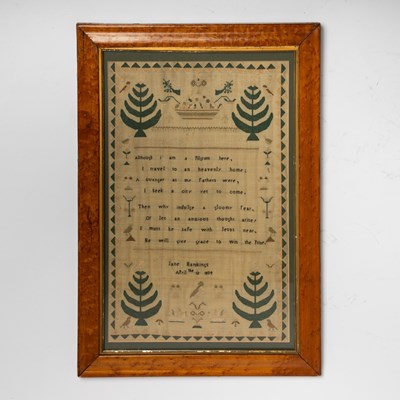 Althongh I am a Pilgrim here,
I travel to an heavenly home;
A stranger as my Fathers were,
I seek a city yet to come.
Then why indulge a gloomy Fear,
Or let an anxious thought arise
I must be safe with Jesus near,
He will give grace to win the Prize.
Jane Hawkings
April